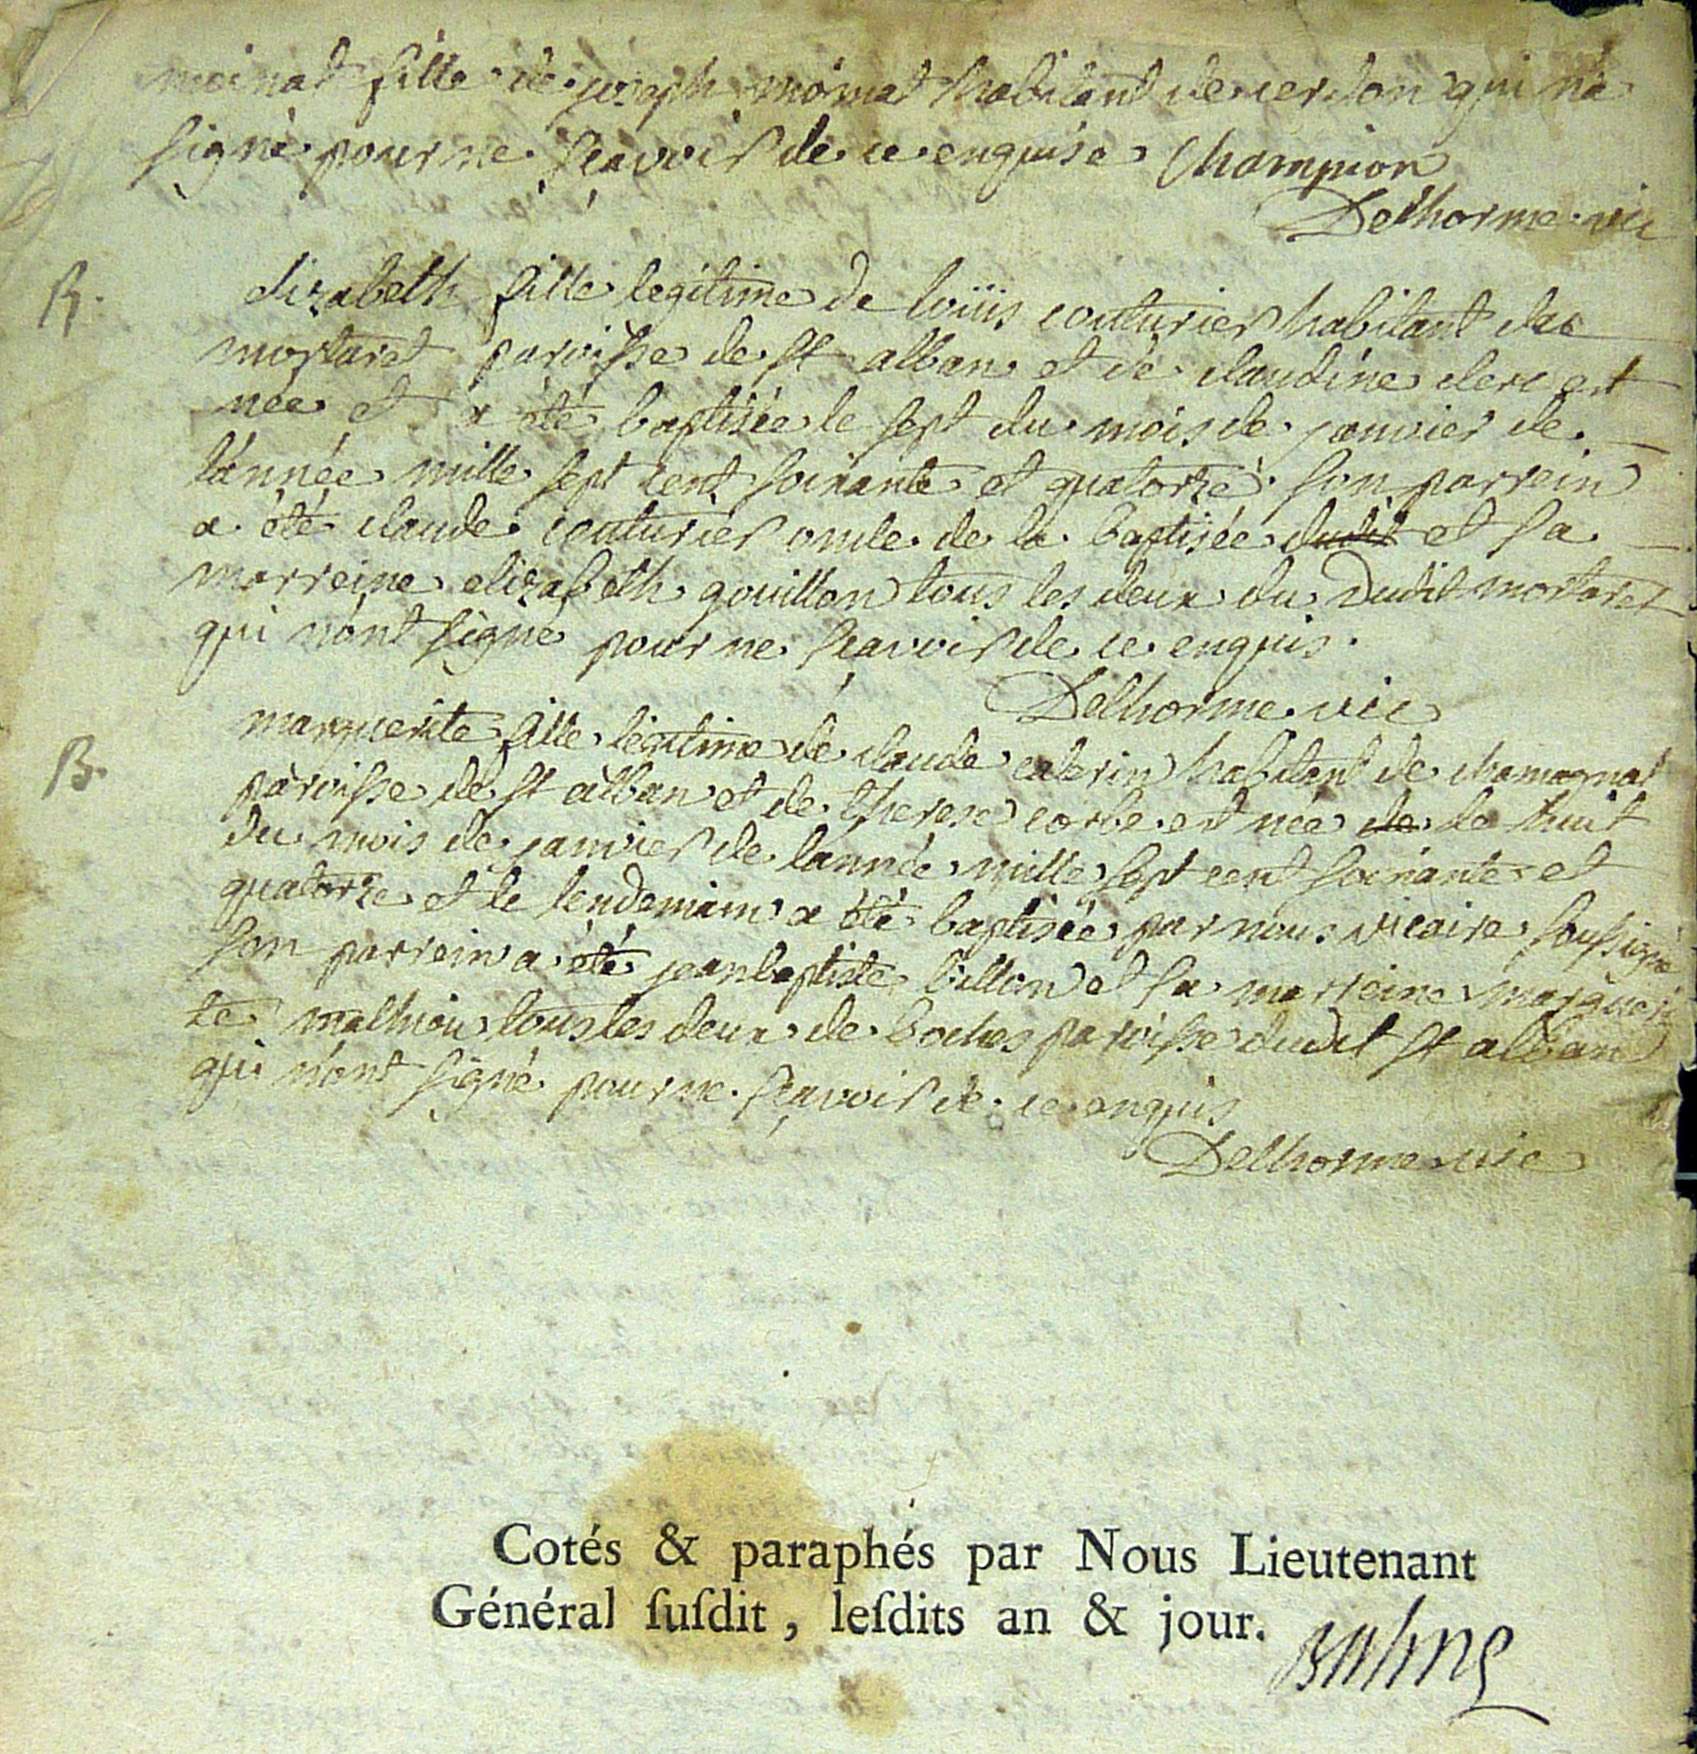 moinat fille de joseph moinat habitant de cerdon qui n'a
signé pour ne sçavoir de ce enquise Champion
Delhorme vic
B.
elizabeth fille legitime de loüis couturier habitant de
mortaret paroisse de st alban et de claudine clerc est
née et a été baptisée le sept du mois de janvier de
l'année mille sept cent soixante et quatorze son parrein
a été claude couturier oncle de la baptisée dudit et sa
marreine elizabeth gouillon tous les deux du Dudit mortaret
qui n'ont signé pour ne sçavoir de ce enquis.
Delhorme vic
B.
marguerite fille legitime de claude habitant de chamagnat
paroisse de st alban et de therese corbe est née de le huit
du mois de janvier de l'année mille sept cent soixante et
quatorze et le lendemain a été baptisée par nous vicaire soussigné
son parrein a été jean baptiste billon et sa marreine margueri
te mathieu tous les deux de boches paroisse dudit st alban
qui n'ont signé pour ne sçavoir de ce enquis
Delhorme vic
Cotés & paraphés par Nous Lieutenant
Général ſuſdit, leſdits an & jour.